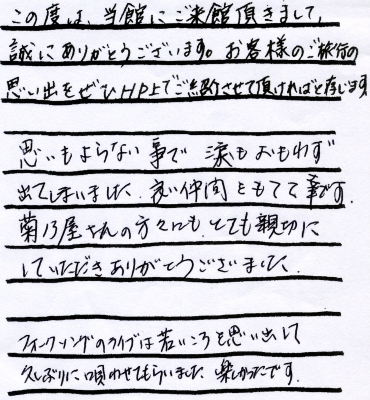 この度は、当館にご来館頂きまして、
誠にありがとうございます。お客様のご旅行の
思い出をぜひHP上でご紹介させて頂ければと存じます
思いもよらない事で 涙もおもわず
出てしまいました。良い仲間をもてて幸です。
菊乃屋さんの方々にも、とても親切に
していただきありがとうございました。
フォークソングのライブは若いころを思い出して
久しぶりに唄わせてもらいました 楽しかったです。